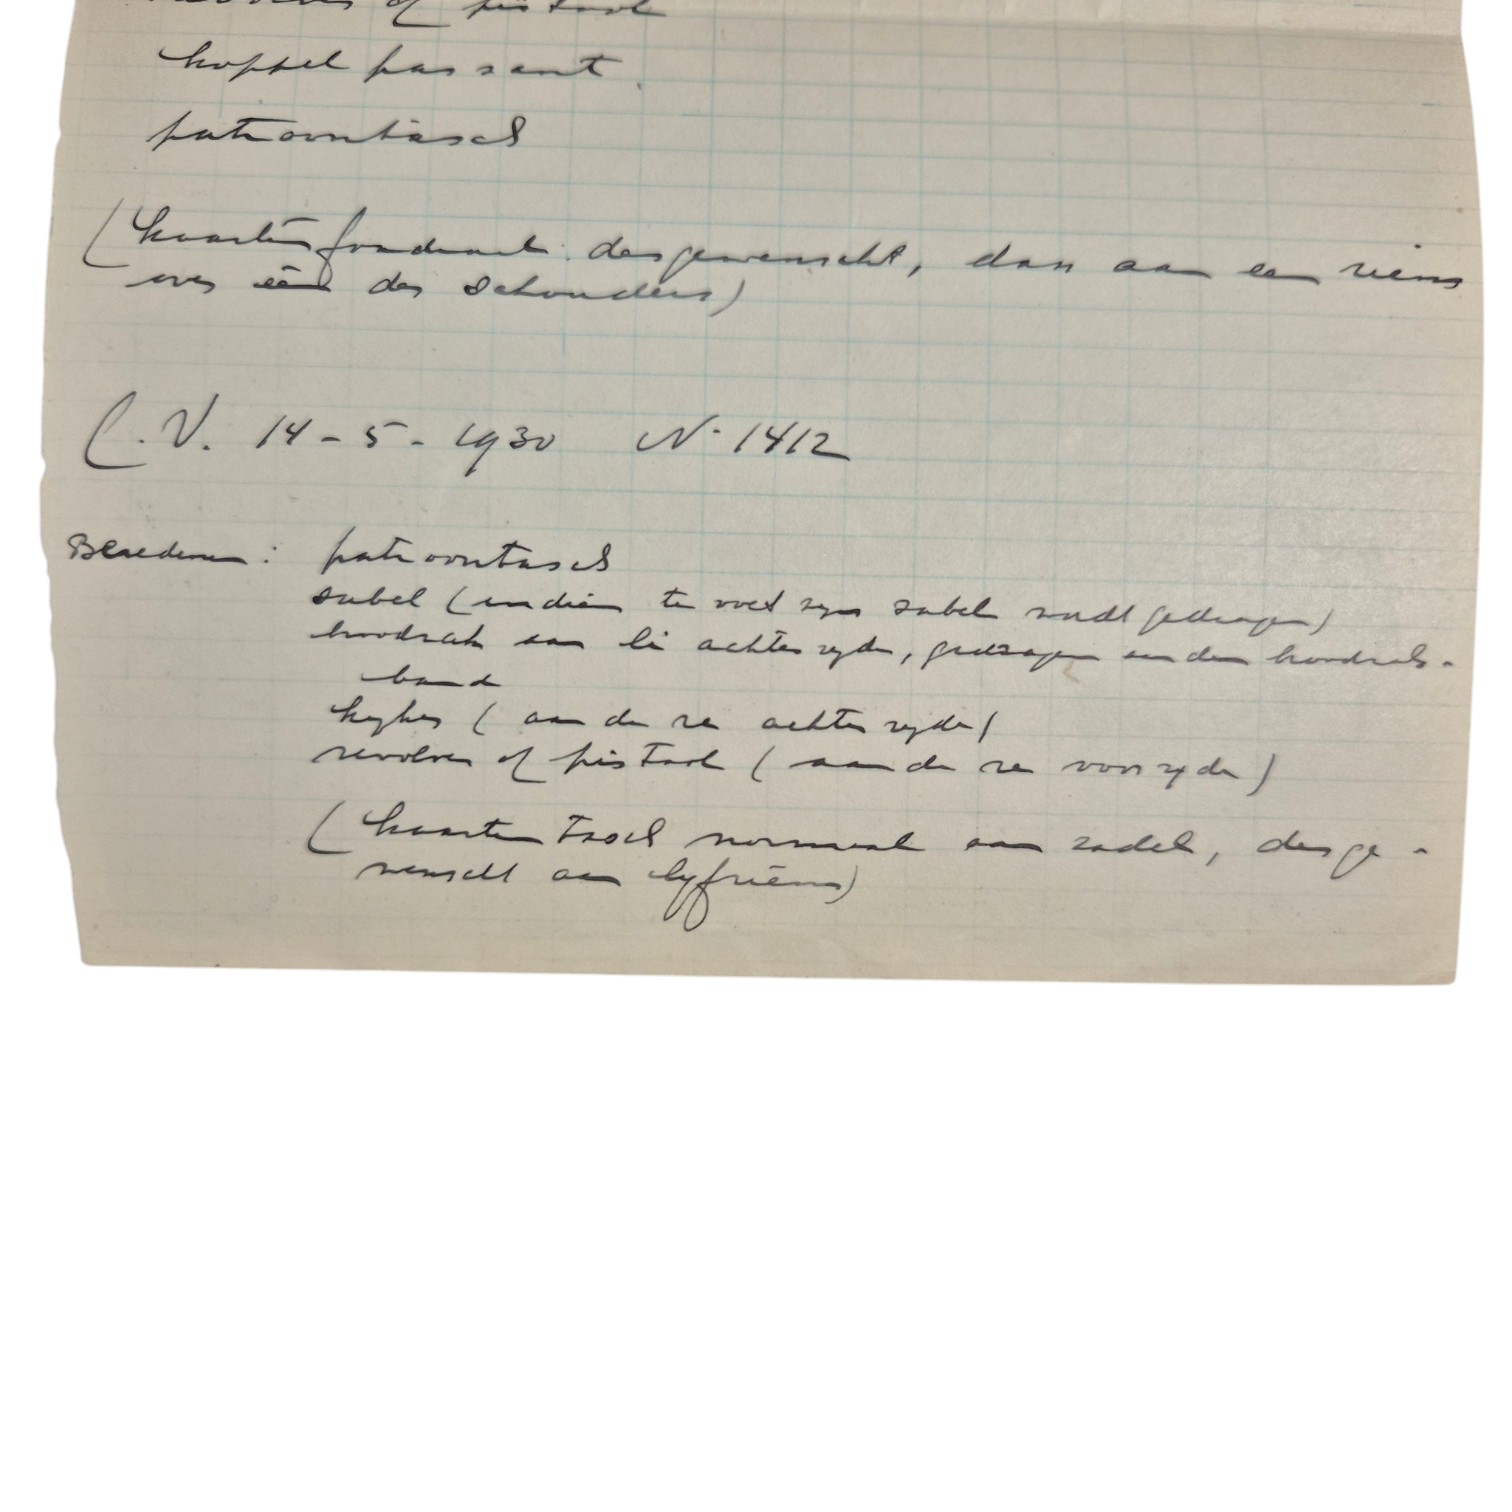 revolver of pistool
koppel passant
patroontasch
(kaarten foudraal: desgewenscht, dan aan een riem
over één der schouders)
C.V. 14-5-1930 N. 1412
Bereden: patroontasch
sabel (indien te voet zyn sabel wordt gedragen)
broodzak aan li achterzyde, gedragen aan den broodzak-
band
kyker (aan de re achterzyde)
revolver of pistool (aan de re voorzyde)
(kaarten tasch normaal aan zadel, desge-
wenscht aan lyfriem)